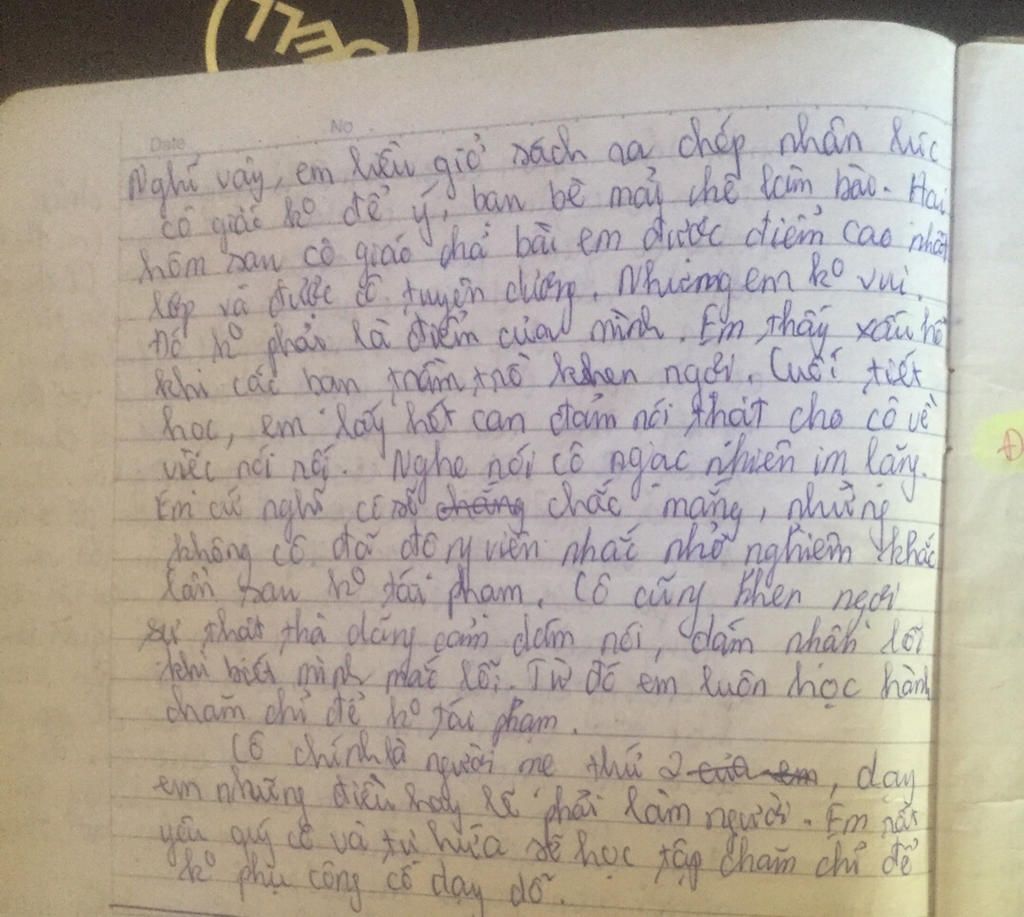 DELL
Date No
Nghĩ vậy, em liều giở sách ra chép nhân lúc
cô giáo ko để ý, bạn bè mải chê làm bào. Hai
hôm sau cô giáo chả bài em được điểm cao nhất
lớp và được cô tuyên dương. Nhưng em ko vui.
Đó ko phải là điểm của mình. Em thấy xấu hổ
khi các bạn trầm trồ khen ngợi. Cuối tiết
học, em lấy hết can đảm nói thật cho cô về
việc nói nối. Nghe nói cô ngạc nhiên im lặng.
Em cứ nghĩ cô sẽ chắng chắc mắng, nhưng
không cô đã động viên nhắc nhở nghiêm khắc
lần sau ko tái phạm. Cô cũng khen ngợi
sự thật thà dũng cảm dám nói, dám nhận lỗi
khi biết mình mắc lỗi. Từ đó em luôn học hành
chăm chỉ để ko tái phạm.
Cô chính là người mẹ thứ 2 của em, dạy
em những điều hay lẽ phải làm người. Em rất
yêu quý cô và tự hứa sẽ học tập chăm chỉ để
ko phụ công cô dạy dỗ.